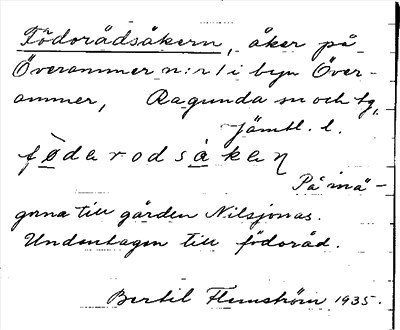 Födorådsåkern, åker på
Överammer n:r 1 i byn Över-
ammer, Ragunda sn och tg,
Jämtl. l.
fødarodsakaɳ
På inä-
gorna till gården Nilsjonas.
Undantagen till födoråd.
Bertil Flemström 1935.